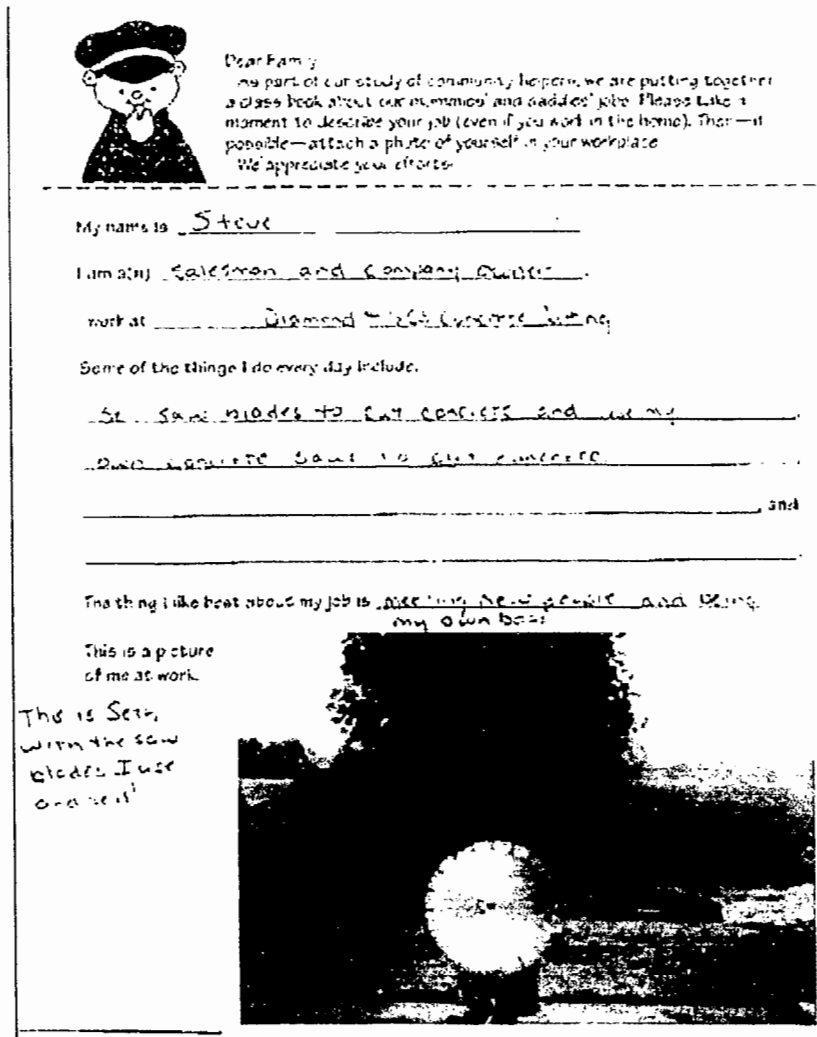 Dear Family
As part of our study of community helpers, we are putting together
a class book about our mommies' and daddies' jobs. Please take a
moment to describe your job (even if you work in the home). Then—if
possible—attach a photo of yourself in your workplace
We appreciate your efforts.
My name is Steve
I am a(n) Salesman and Company Owner.
work at Diamond Concrete Cutting
Some of the things I do every day include.
saw blades to cut concrete and use my
own concrete saws to cut concrete
, and
The thing I like best about my job is meeting new people and being
my own boss
This is a picture
of me at work.
This is Seth
with the saw
blades I use
and sell!